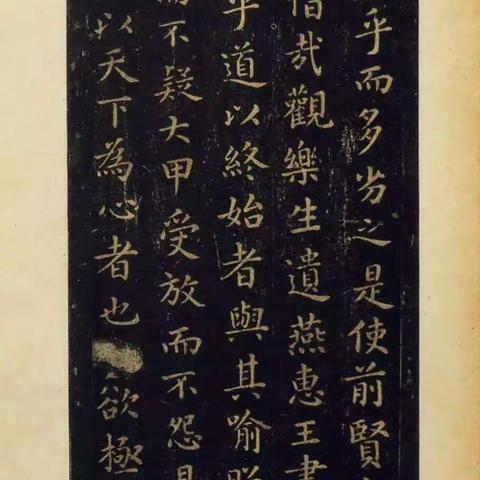 乎而多劣之是使前賢
惜哉觀樂生遺燕惠王書
乎道以終始者與其喻
而不疑大甲受放而不怨是
以天下為心者也 欲極